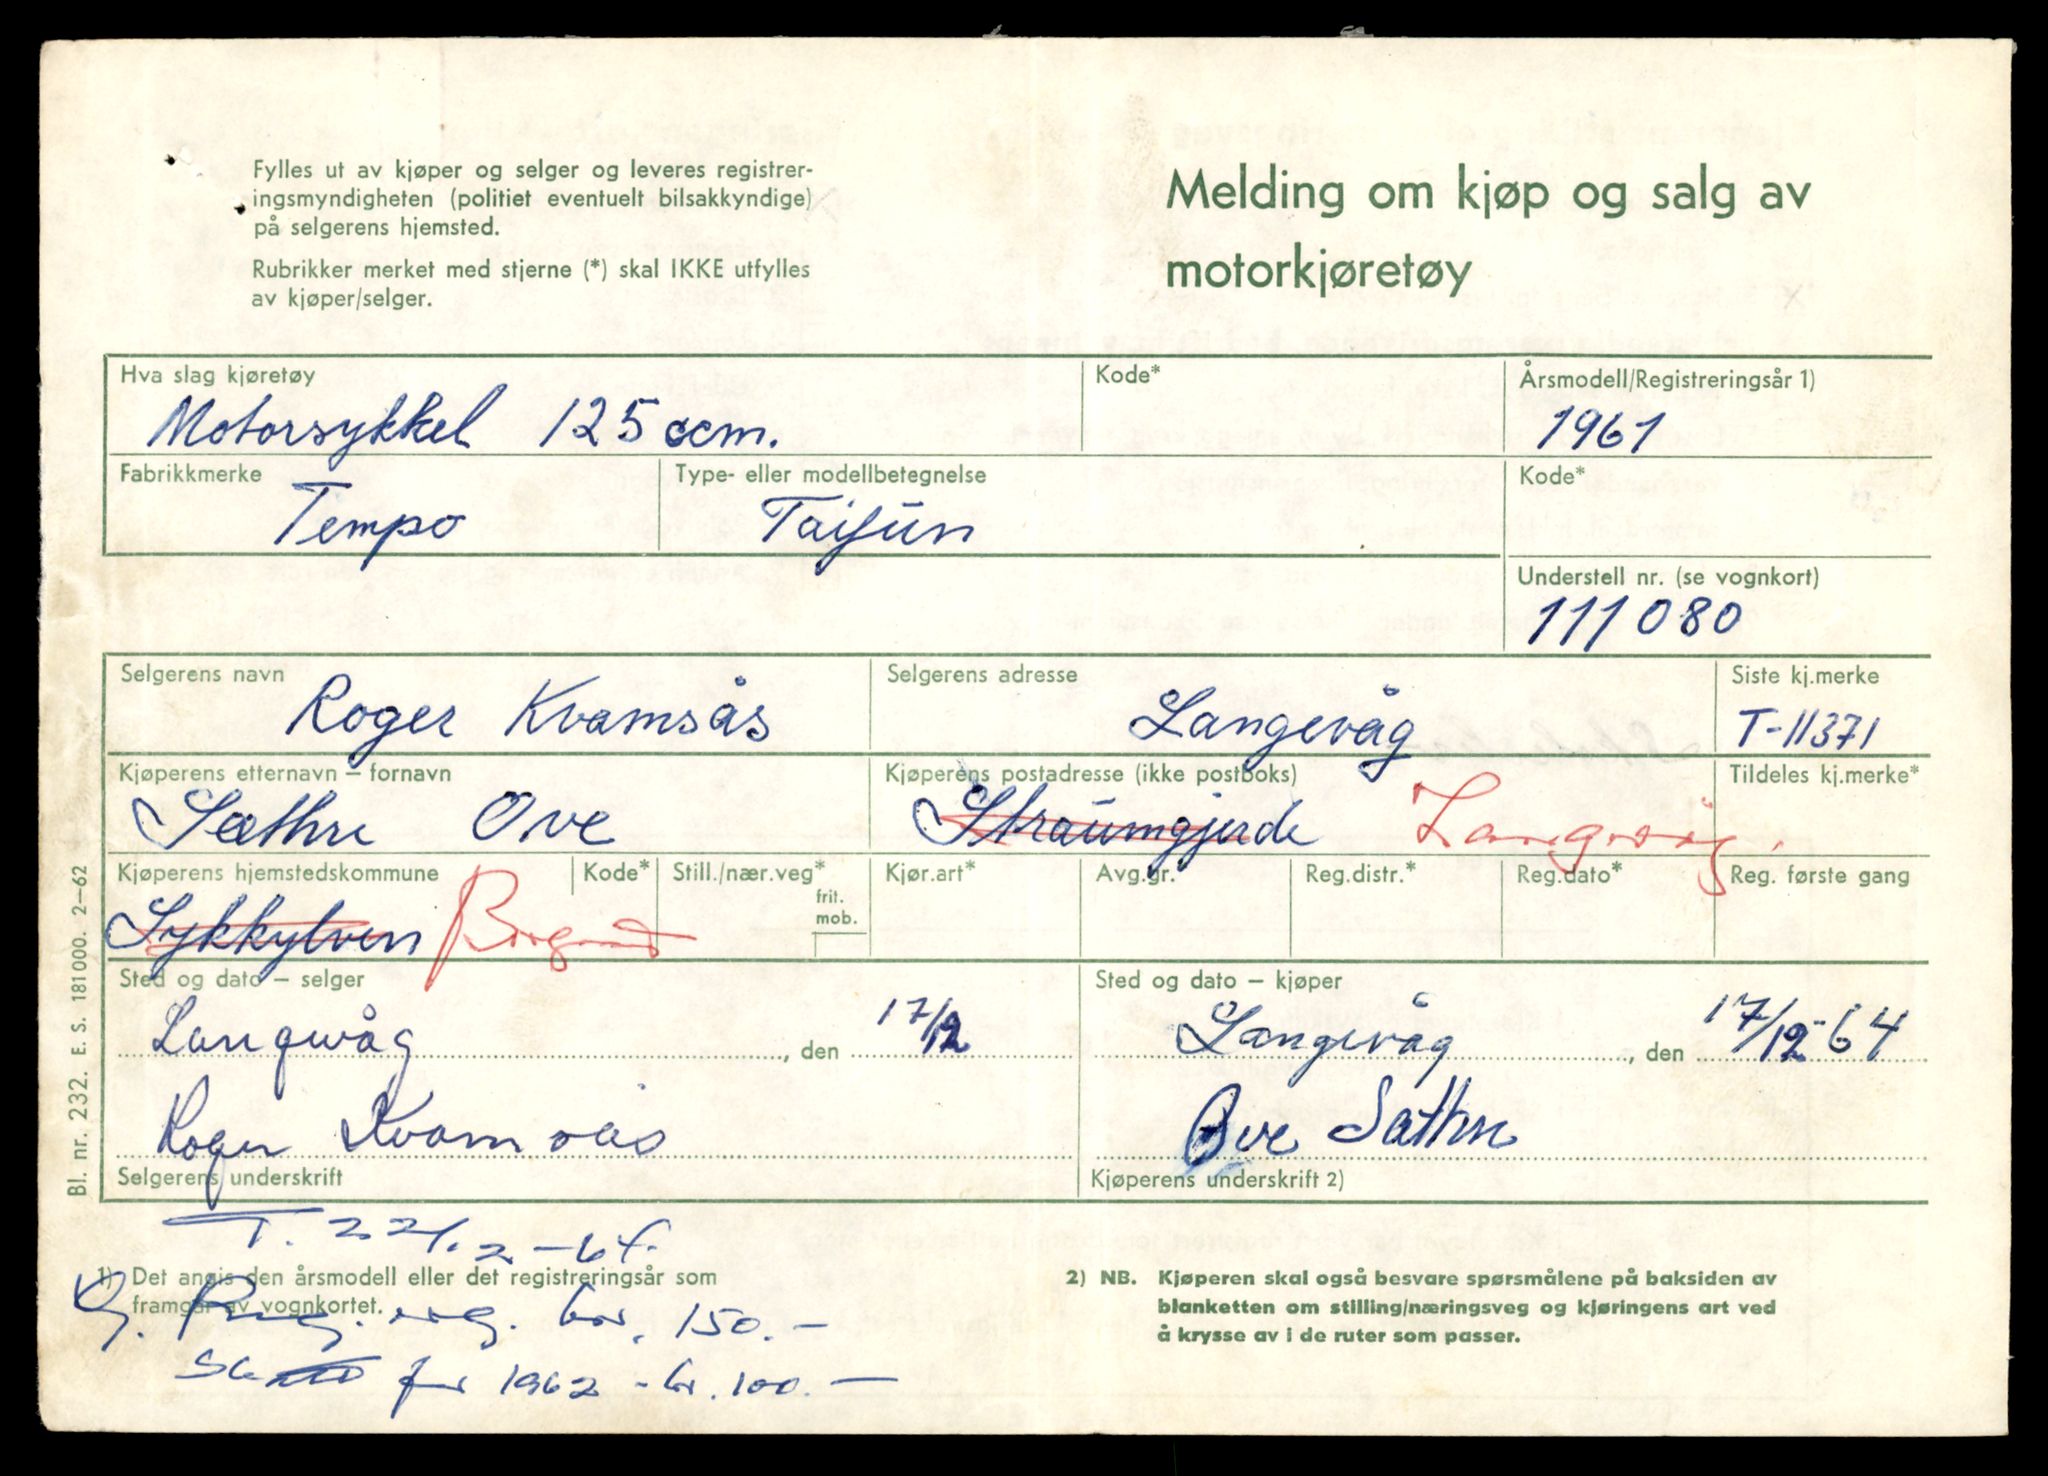 Fylles ut av kjøper og selger og leveres registrer-
ingsmyndigheten (politiet eventuelt bilsakkyndige)
på selgerens hjemsted.
Rubrikker merket med stjerne (*) skal IKKE utfylles
av kjøper/selger.
Melding om kjøp og salg av
motorkjøretøy
Hva slag kjøretøy
Motorsykkel 125 ccm.
Kode*
Årsmodell/Registreringsår 1)
1961
Fabrikkmerke
Tempo
Type- eller modellbetegnelse
Taifun
Kode*
Understell nr. (se vognkort)
111080
Selgerens navn
Roger Kvamsås
Selgerens adresse
Langevåg
Siste kj.merke
T-11371
Kjøperens etternavn – fornavn
Sæthre Ove
Kjøperens postadresse (ikke postboks)
Straumgjerde Langevåg.
Tildeles kj.merke*
Kjøperens hjemstedskommune
Sykkylven Borgund
Kode*
Still./nær.veg*
frit.
mob.
Kjør.art*
Avg.gr.*
Reg.distr.*
Reg.dato*
Reg. første gang
Sted og dato – selger
Langevåg, den 17/12
Roger Kvamsås
Selgerens underskrift
Sted og dato – kjøper
Langevåg, den 17/12-64
Ove Sæthre
Kjøperens underskrift 2)
Bl. nr. 232. E. S. 181000. 2–62
T. 22/12-64.
1) Det angis den årsmodell eller det registreringsår som
framgår av vognkortet.
kr. 150.-
for 1962 - kr. 100.-
2) NB. Kjøperen skal også besvare spørsmålene på baksiden av
blanketten om stilling/næringsveg og kjøringens art ved
å krysse av i de ruter som passer.